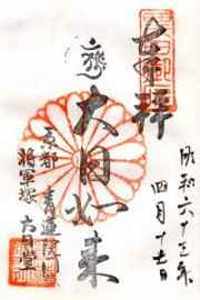 昭和六十三年
四月十七日
奉拝
大日如来
京都 青蓮院門跡
将軍塚 大日堂